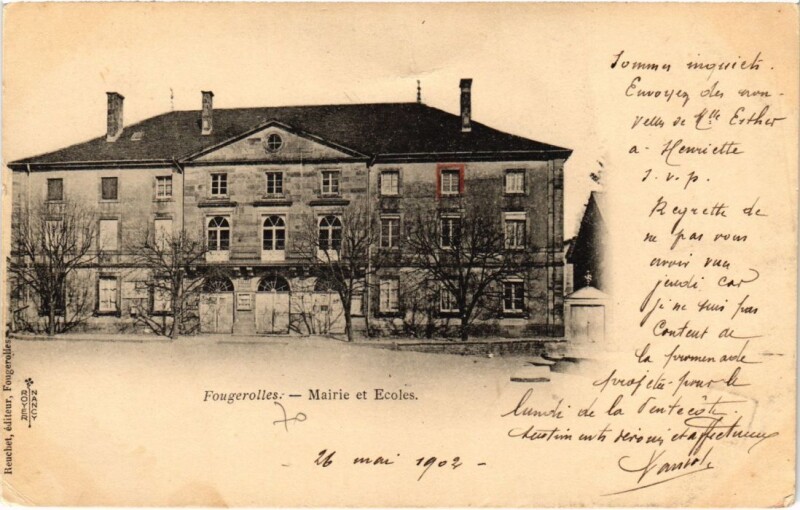 Sommes inquiets.
Envoyez des nou-
velles de Mlle Esther
a - Henriette
s.v.p.
Regrette de
ne pas vous
avoir vu
jeudi car
je ne suis pas
Content de
la promenade
projetée pour le
lundi de la Pentecôte.
Sentiments dévoués et affectueux
Fougerolles. — Mairie et Ecoles.
70
- 26 mai 1902 -
Reuchet, éditeur, Fougerolles
ROYER
NANCY